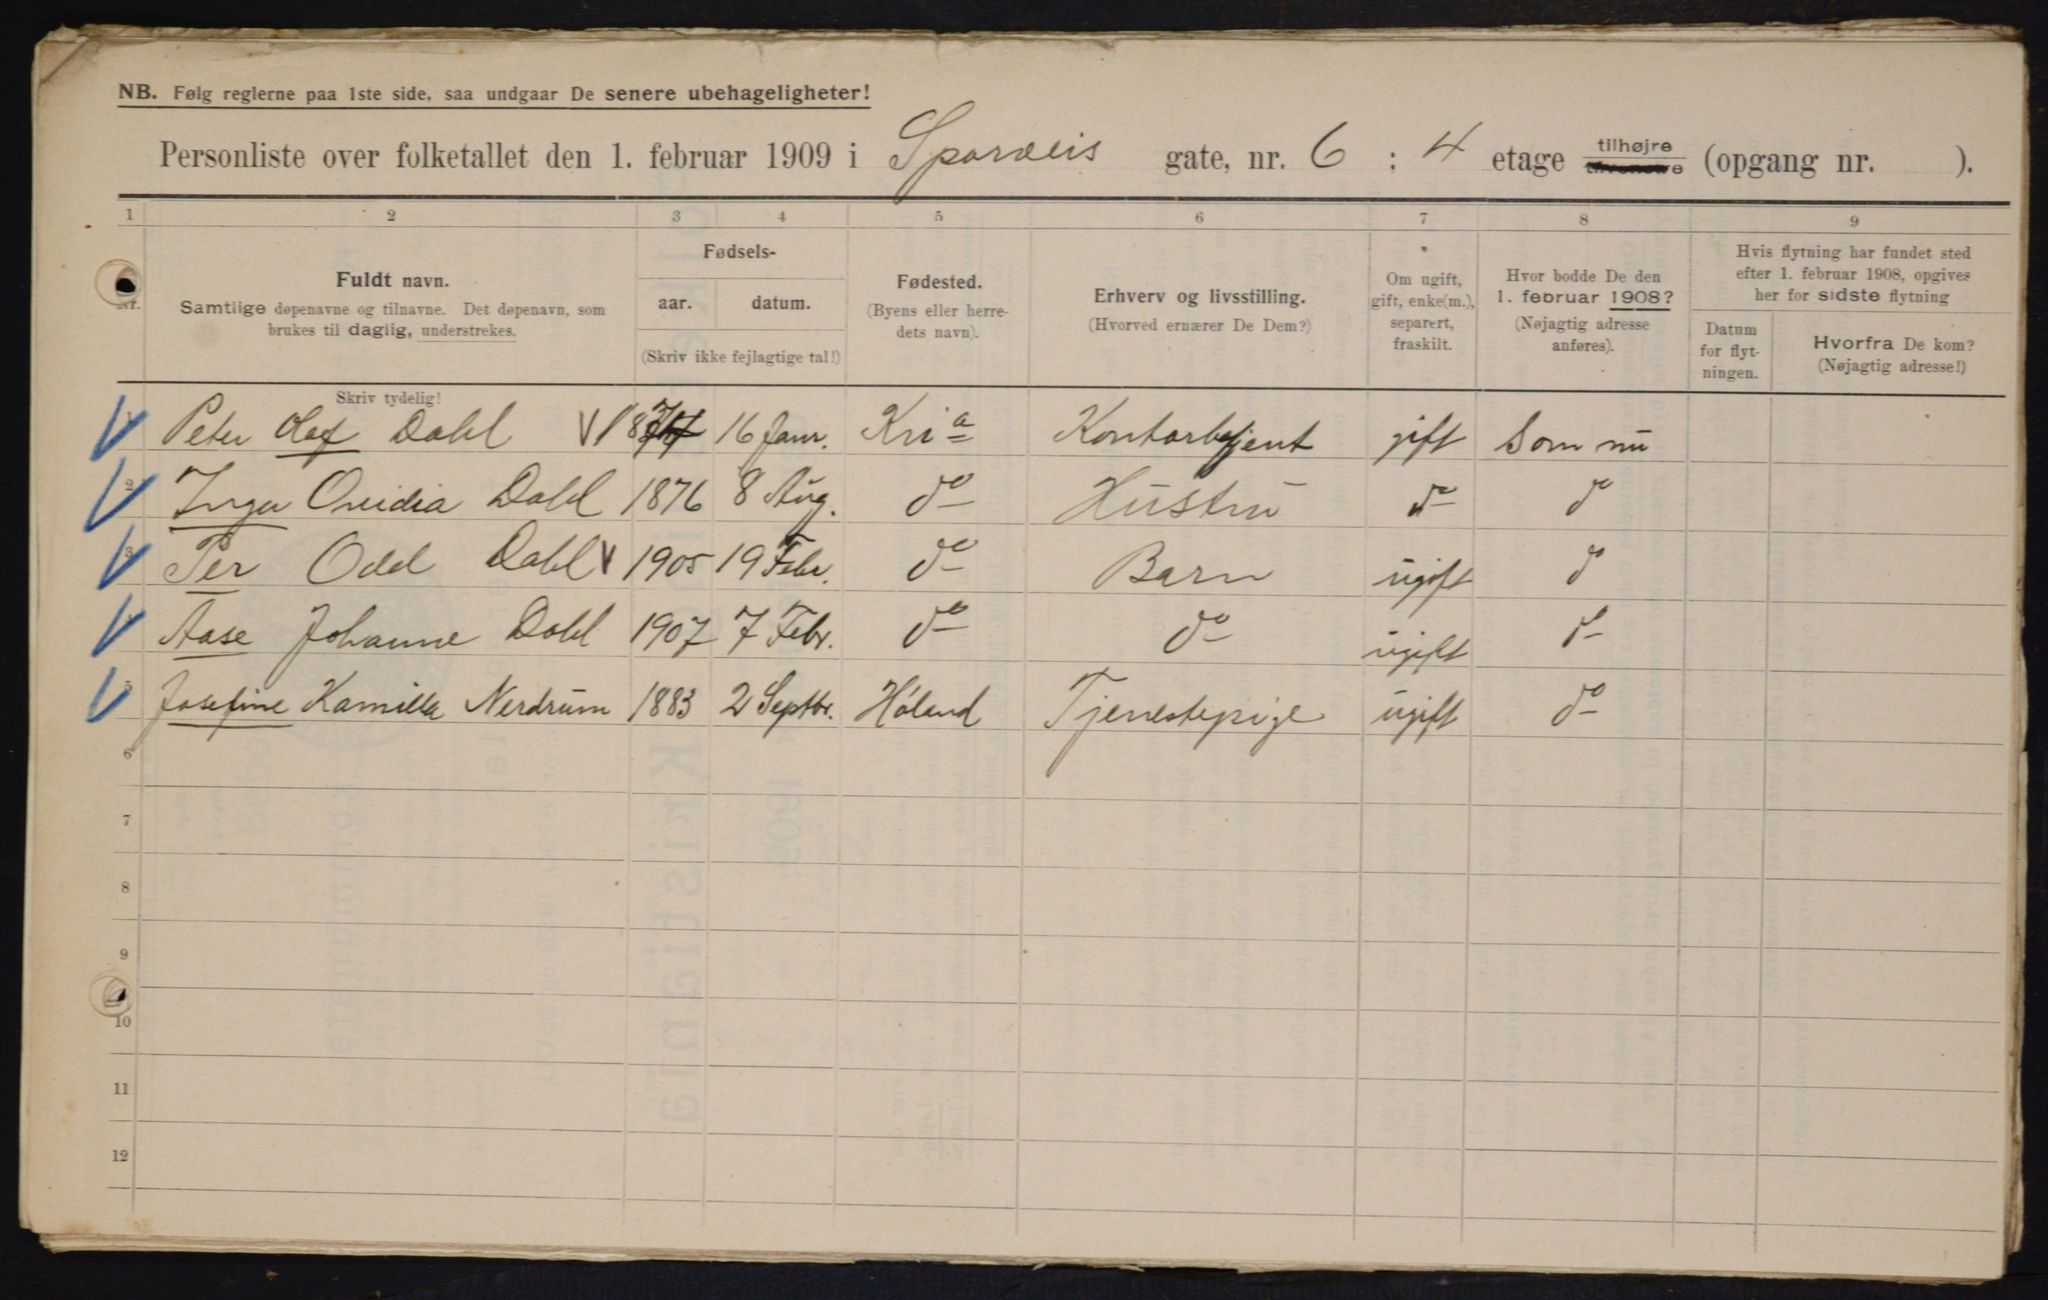 NB. Følg reglerne paa 1ste side, saa undgaar De senere ubehageligheter!
Personliste over folketallet den 1. februar 1909 i Sporveis gate, nr. 6 : 4 etage tilhøjre (opgang nr. ).
1 2 3 4 5 6 7 8 9
Nr.
Fuldt navn.
Samtlige døpenavne og tilnavne. Det døpenavn, som
brukes til daglig, understrekes.
Skriv tydelig!
Fødsels-
aar. datum.
(Skriv ikke fejlagtige tal!)
Fødested.
(Byens eller herre-
dets navn).
Erhverv og livsstilling.
(Hvorved ernærer De Dem?)
*
Om ugift,
gift, enke(m.),
separert,
fraskilt.
Hvor bodde De den
1. februar 1908?
(Nøjagtig adresse
anføres).
Hvis flytning har fundet sted
efter 1. februar 1908, opgives
her for sidste flytning
Datum
for flyt-
ningen.
Hvorfra De kom?
(Nøjagtig adresse!)
1 Peter Olaf Dahl 16 Janr. Kria Kontorbetjent gift Som nu
2 Inga Ovidia Dahl 1876 8 Aug. do Hustru do do
3 Per Odd Dahl 1905 19 Febr. do Barn ugift do
4 Aase Johanne Dahl 1907 7 Febr. do do ugift do
5 Josefine Kamilla Nerdrum 1883 2 Septbr. Høland Tjenestepige ugift do
6
7
8
9
10
11
12